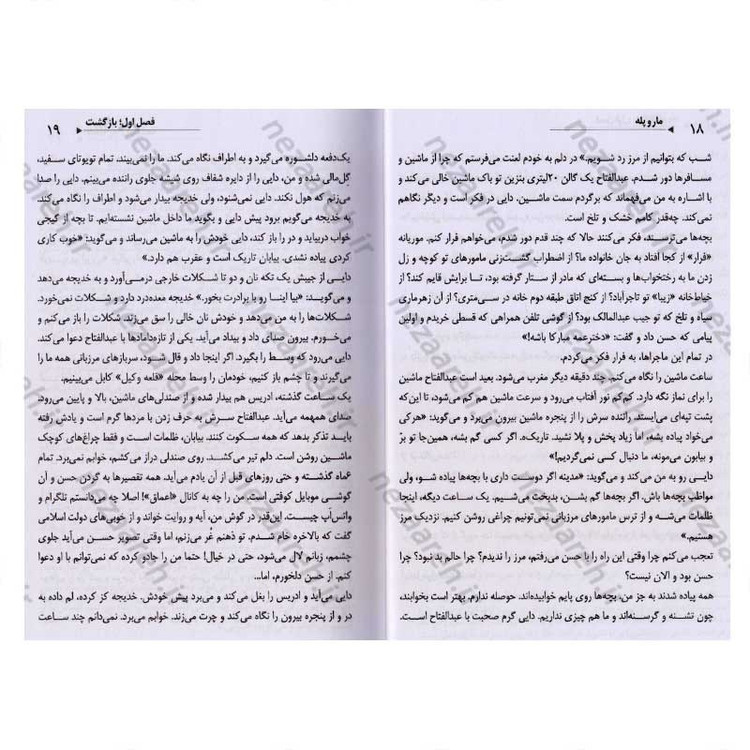 ۱۸ مار و پله
شب که بتوانیم از مرز رد شویم.» در دلم به خودم لعنت می‌فرستم که چرا از ماشین و
مسافرها دور شدم. عبدالفتاح یک گالن ۲۰لیتری بنزین تو باک ماشین خالی می‌کند و
با اشاره به من می‌فهماند که برگردم سمت ماشین. دایی در فکر است و دیگر نگاهم
نمی‌کند. چه‌قدر کامم خشک و تلخ است.
بچه‌ها می‌ترسند، فکر می‌کنند حالا که چند قدم دور شدم، می‌خواهم فرار کنم. موریانه
«فرار» از کجا افتاد به جان خانواده ما؟ از اضطراب گشت‌زنی مامورهای تو کوچه و زل
زدن ما به رختخواب‌ها و بسته‌ای که مادر از ستار گرفته بود، تا برایش قایم کند؟ از
خیاط‌خانه «زیبا» تو تاجرآباد؟ از کنج اتاق طبقه دوم خانه در سی‌متری؟ از آن زهرماری
سیاه و تلخ که تو جیب عبدالمالک بود؟ از گوشی تلفن همراهی که قسطی خریدم و اولین
پیامی که حسن داد و گفت: «دخترعمه مبارکا باشه!»
در تمام این ماجراها، به فرار فکر می‌کردم.
ساعت ماشین را نگاه می‌کنم. چند دقیقه دیگر مغرب می‌شود. بعید است عبدالفتاح ماشین
را برای نماز نگه دارد. کم‌کم نور آفتاب می‌رود و سرعت ماشین هم کم می‌شود، تا این‌که
پشت تپه‌ای می‌ایستد. راننده سرش را از پنجره ماشین بیرون می‌برد و می‌گوید: «هرکی
می‌خواد پیاده بشه، اما زیاد پخش و پلا نشید. تاریک‌ه. اگر کسی گم بشه، همین‌جا تو برّ
و بیابون می‌مونه، ما دنبال کسی نمی‌گردیم!»
دایی رو به من می‌کند و می‌گوید: «مدینه اگر دوست داری با بچه‌ها پیاده شو، ولی
مواظب بچه‌ها باش. اگر بچه‌ها گم بشن، بدبخت می‌شیم. یک ساعت دیگه، اینجا
ظلمات می‌شه و از ترس مامورهای مرزبانی نمی‌تونیم چراغی روشن کنیم. نزدیک مرز
هستیم.»
تعجب می‌کنم چرا وقتی این راه را با حسن می‌رفتم، مرز را ندیدم؟ چرا حالم بد نبود؟ چرا
حسن بود و الان نیست؟
همه پیاده شدند به جز من. بچه‌ها روی پایم خوابیده‌اند. حوصله ندارم. بهتر است بخوابند،
چون تشنه و گرسنه‌اند و ما هم چیزی نداریم. دایی گرم صحبت با عبدالفتاح است.
فصل اول؛ بازگشت ۱۹
یک‌دفعه دلشوره می‌گیرد و به اطراف نگاه می‌کند. ما را نمی‌بیند. تمام تویوتای سفید،
گِل‌مالی شده و من، دایی را از دایره شفاف روی شیشه جلوی راننده می‌بینم. دایی را صدا
می‌زنم که هول نکند. دایی نمی‌شنود، ولی خدیجه بیدار می‌شود و اطراف را نگاه می‌کند.
به خدیجه می‌گویم برود پیش دایی و بگوید ما داخل ماشین نشسته‌ایم. تا بچه از گیجی
خواب دربیاید و در را باز کند، دایی خودش را به ماشین می‌رساند و می‌گوید: «خوب کاری
کردی پیاده نشدی. بیابان تاریک است و عقرب هم دارد.»
دایی از جیبش یک تکه نان و دو تا شکلات خارجی درمی‌آورد و به خدیجه می‌دهد
و می‌گوید: «بیا اینا رو با برادرت بخور.» خدیجه معده‌درد دارد و شکلات نمی‌خورد.
شکلات‌ها را به من می‌دهد و خودش نان خالی را سق می‌زند. شکلات را باز می‌کنم و
می‌خورم. بیرون صدای داد و بیداد می‌آید. یکی از تازه‌دامادها با عبدالفتاح دعوا می‌کند.
دایی می‌رود که وسط را بگیرد. اگر اینجا داد و قال شود، سربازهای مرزبانی همه ما را
می‌گیرند و تا چشم باز کنیم، خودمان را وسط محله «قلعه وکیل» کابل می‌بینیم.
یک ساعت گذشته، ادریس هم بیدار شده و از صندلی‌های ماشین، بالا و پایین می‌رود.
صدای همهمه می‌آید. عبدالفتاح سرش به حرف زدن با مردها گرم است و یادش رفته
باید تذکر بدهد که همه سکوت کنند. بیابان، ظلمات است و فقط چراغ‌های کوچک
ماشین روشن است. دلم تیر می‌کشد. روی صندلی دراز می‌کشم، خوابم نمی‌برد. تمام
۶ماه گذشته و حتی روزهای قبل از آن یادم می‌آید. همه تقصیرها به گردن حسن و آن
گوشی موبایل کوفتی است. من را چه به کانال «اعماق»! اصلا چه می‌دانستم تلگرام و
واتس‌آپ چیست. این‌قدر در گوش من، آیه و روایت خواند و از خوبی‌های دولت اسلامی
گفت که بالاخره خام شدم. تو ذهنم غر می‌زنم، اما وقتی تصویر حسن می‌آید جلوی
چشمم، زبانم لال می‌شود، حتی در خیال! حتما من را جادو کرده که نمی‌توانم با او دعوا
کنم. از حسن دلخورم، اما...
دایی می‌آید و ادریس را بغل می‌کند و می‌برد پیش خودش. خدیجه کز کرده، لم داده به
در و از پنجره بیرون را نگاه می‌کند و چرت می‌زند. خوابم می‌برد. نمی‌دانم چند ساعت
nezaareh.ir